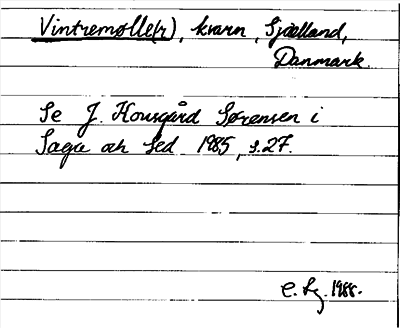 Vintremølle(r), kvarn, Sjælland,
Danmark.
Se J. Kousgård Sørensen i
Saga och Sed 1985, s.27.
C. Lg. 1988.